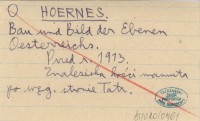 Q HOERNES.
Bau und Bild der Ebenen
Oesterreichs.
Przed r. 1913.
Znaleziska kości mamuta
po węg. stronie Tatr.